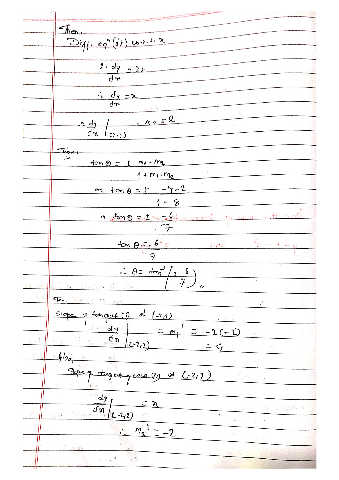 Then,
Diff. eqn (ii) w.r.t. x
2. dy/dx = 2x
∴ dy/dx = x
∴ dy/dx | = x = 2
tanθ = ± m₁-m₂
1+m₁m₂
or tanθ = ± -4-2
1-8
or tanθ = ± -6
-7
tanθ = ± 6
7
∴ θ = tan⁻¹(± 6/7)
slope of tangent at (-2,2)
dy/dx |(-2,2) = m₁ = -2(-2)
= 4
Also,
Slope of tangent at (-2,2)
dy/dx |(-2,2) = x
∴ m₂ = -2